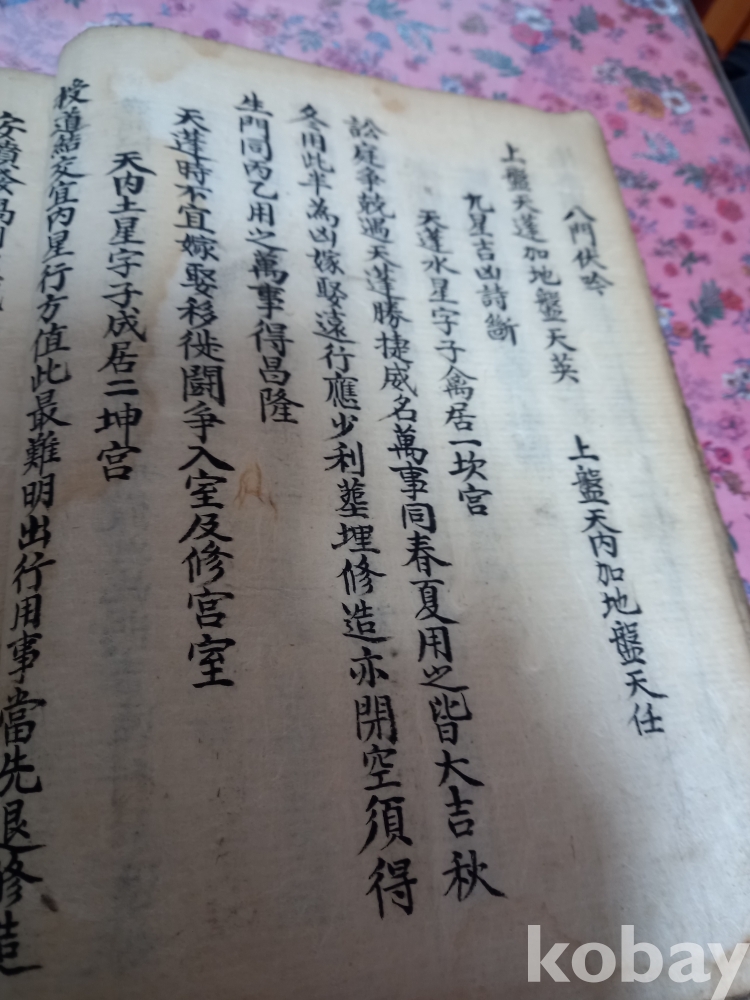 八門伏吟
上盤天蓬加地盤天英　上盤天内加地盤天任
九星吉凶詩斷
天蓬水星字子禽居一坎宫
訟庭争兢遇天蓬勝捷威名萬事同春夏用之皆大吉秋
冬用此半為凶嫁娶遠行應少利塟埋修造亦閑空須得
生門同丙乙用之萬事得昌隆
天蓬時不宜嫁娶移徙鬪争入室及修宫室
天内土星字子成居二坤宫
授道結交宜内星行方值此最難明出行用事當先退修造
安墳發
kobay